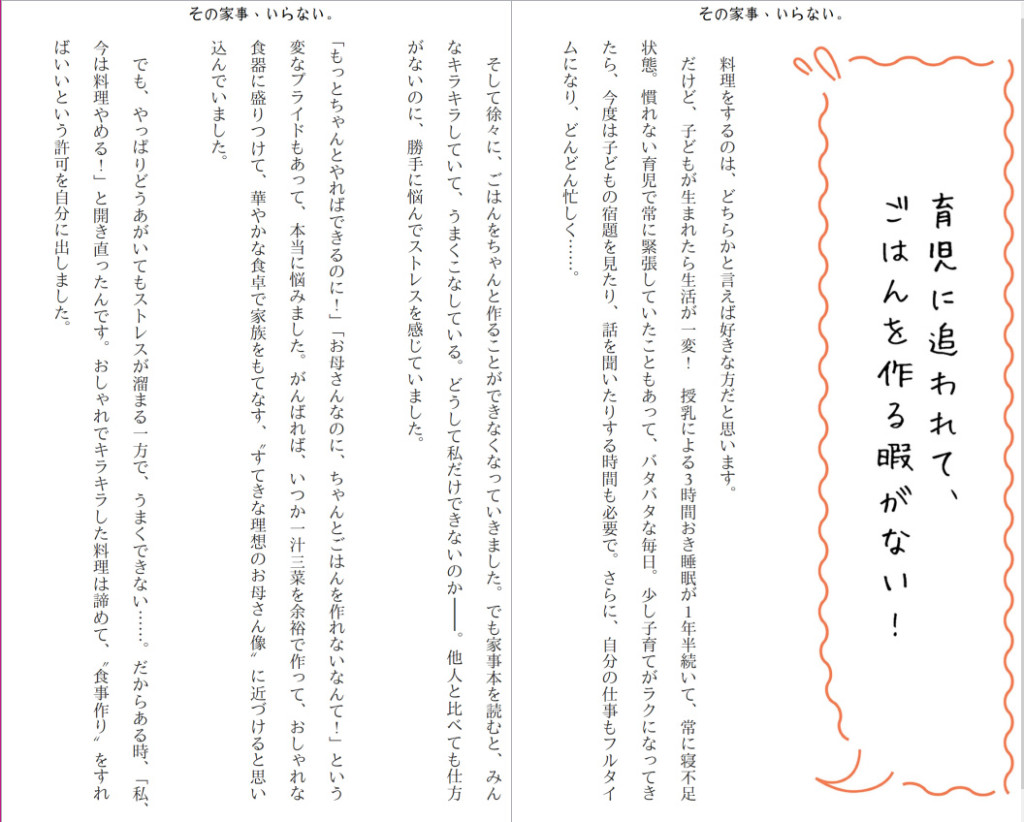 その家事、いらない。
育児に追われて、
ごはんを作る暇がない！
料理をするのは、どちらかと言えば好きな方だと思います。
だけど、子どもが生まれたら生活が一変！　授乳による3時間おき睡眠が1年半続いて、常に寝不足
状態。慣れない育児で常に緊張していたこともあって、バタバタな毎日。少し子育てがラクになってき
たら、今度は子どもの宿題を見たり、話を聞いたりする時間も必要で。さらに、自分の仕事もフルタイ
ムになり、どんどん忙しく……。
その家事、いらない。
そして徐々に、ごはんをちゃんと作ることができなくなっていきました。でも家事本を読むと、みん
なキラキラしていて、うまくこなしている。どうして私だけできないのか――。他人と比べても仕方
がないのに、勝手に悩んでストレスを感じていました。
「もっとちゃんとやればできるのに！」「お母さんなのに、ちゃんとごはんを作れないなんて！」という
変なプライドもあって、本当に悩みました。がんばれば、いつか一汁三菜を余裕で作って、おしゃれな
食器に盛りつけて、華やかな食卓で家族をもてなす、〝すてきな理想のお母さん像〟に近づけると思い
込んでいました。
でも、やっぱりどうあがいてもストレスが溜まる一方で、うまくできない……。だからある時、「私、
今は料理やめる！」と開き直ったんです。おしゃれでキラキラした料理は諦めて、〝食事作り〟をすれ
ばいいという許可を自分に出しました。